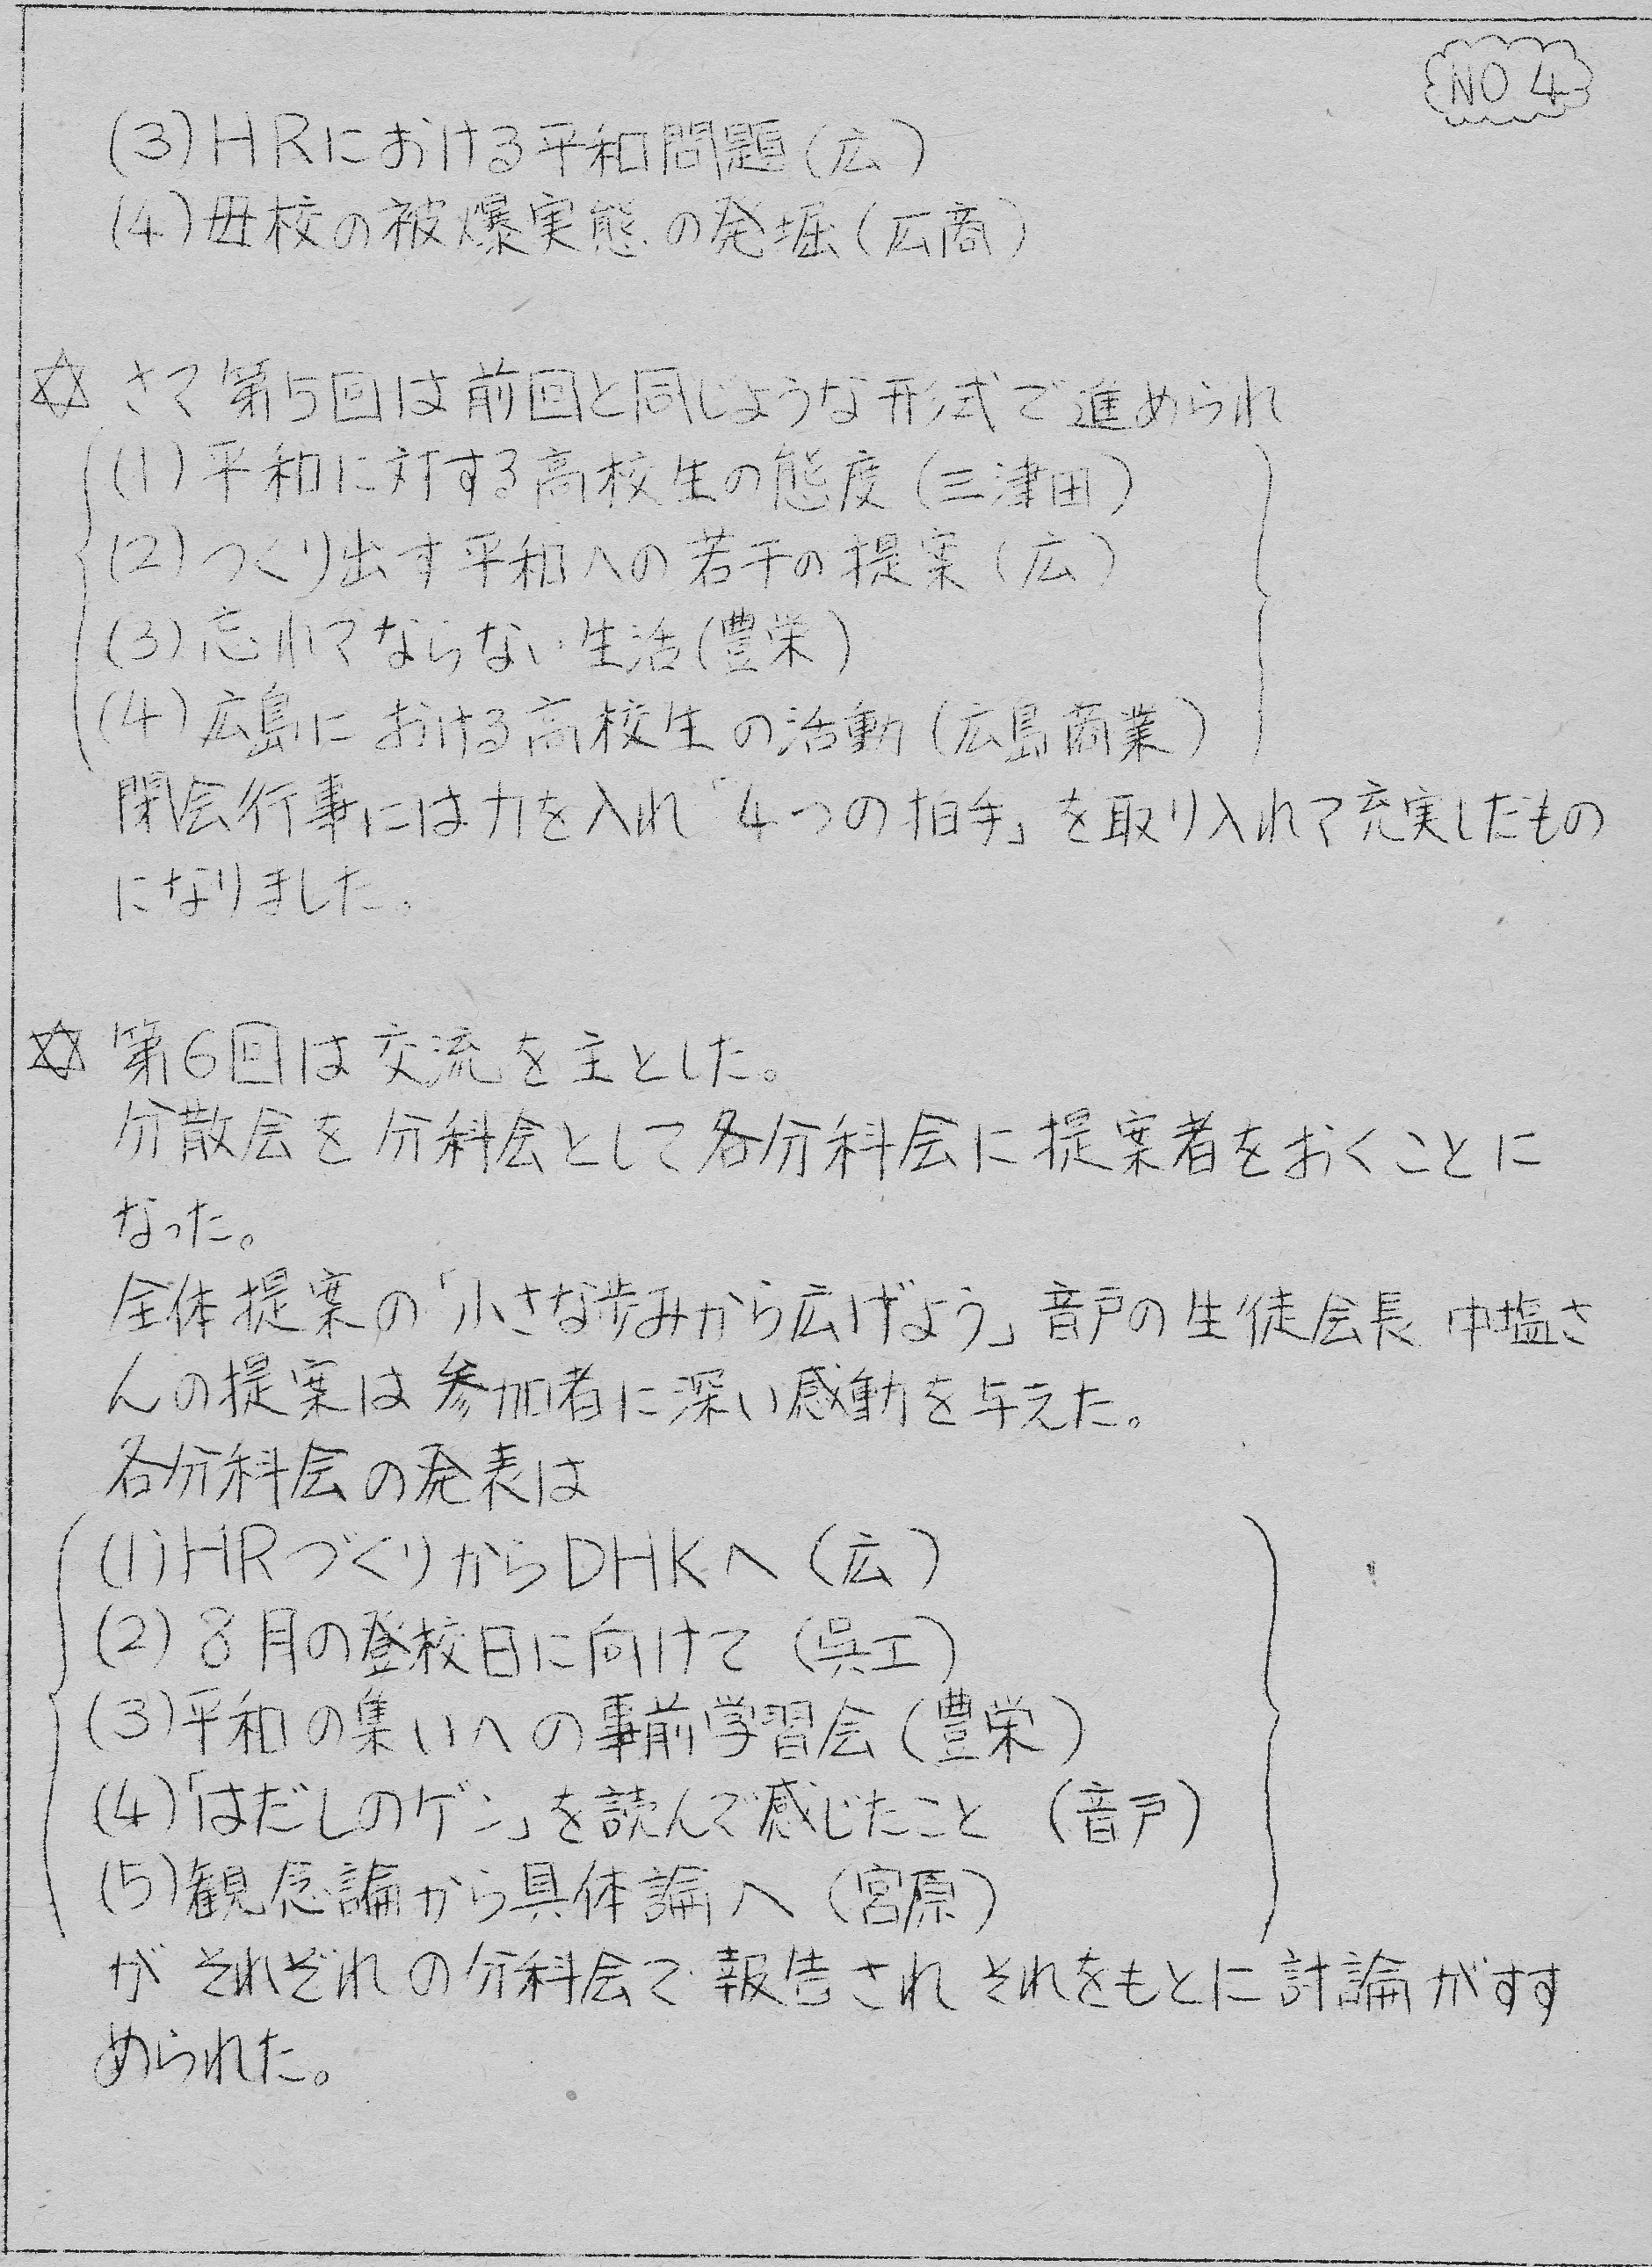 NO 4
(3) HRにおける平和問題(広)
(4) 母校の被爆実態の発堀(広商)
☆ さて第5回は前回と同じような形式で進められ
(1) 平和に対する高校生の態度(三津田)
(2) つくり出す平和への若干の提案(広)
(3) 忘れてならない生活(豊栄)
(4) 広島における高校生の活動(広島商業)
閉会行事には力を入れ「4つの拍手」を取り入れて充実したもの
になりました。
☆ 第6回は交流を主とした。
分散会を分科会として各分科会に提案者をおくことに
なった。
全体提案の「小さな歩みから広げよう」音戸の生徒会長 中塩さ
んの提案は参加者に深い感動を与えた。
各分科会の発表は
(1) HRづくりからDHKへ(広)
(2) 8月の登校日に向けて(呉工)
(3) 平和の集いへの事前学習会(豊栄)
(4)「はだしのゲン」を読んで感じたこと (音戸)
(5) 観念論から具体論へ(宮原)
がそれぞれの分科会で報告されそれをもとに討論がすす
められた。